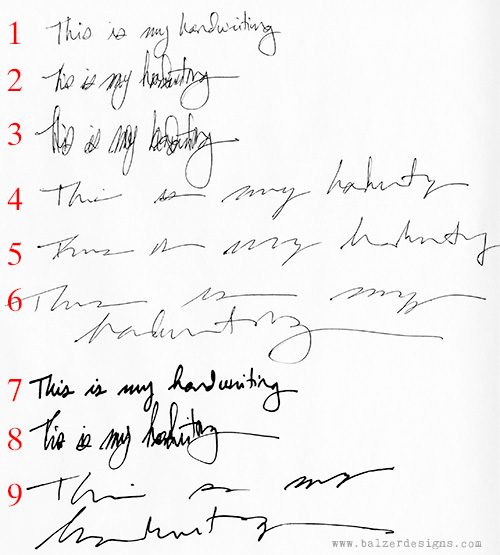 1 This is my handwriting
2 This is my handwriting
3 This is my handwriting
4 This is my handwriting
5 This is my handwriting
6 This is my
handwriting
7 This is my handwriting
8 This is my handwriting
9 This is my
handwriting
www.balzerdesigns.com